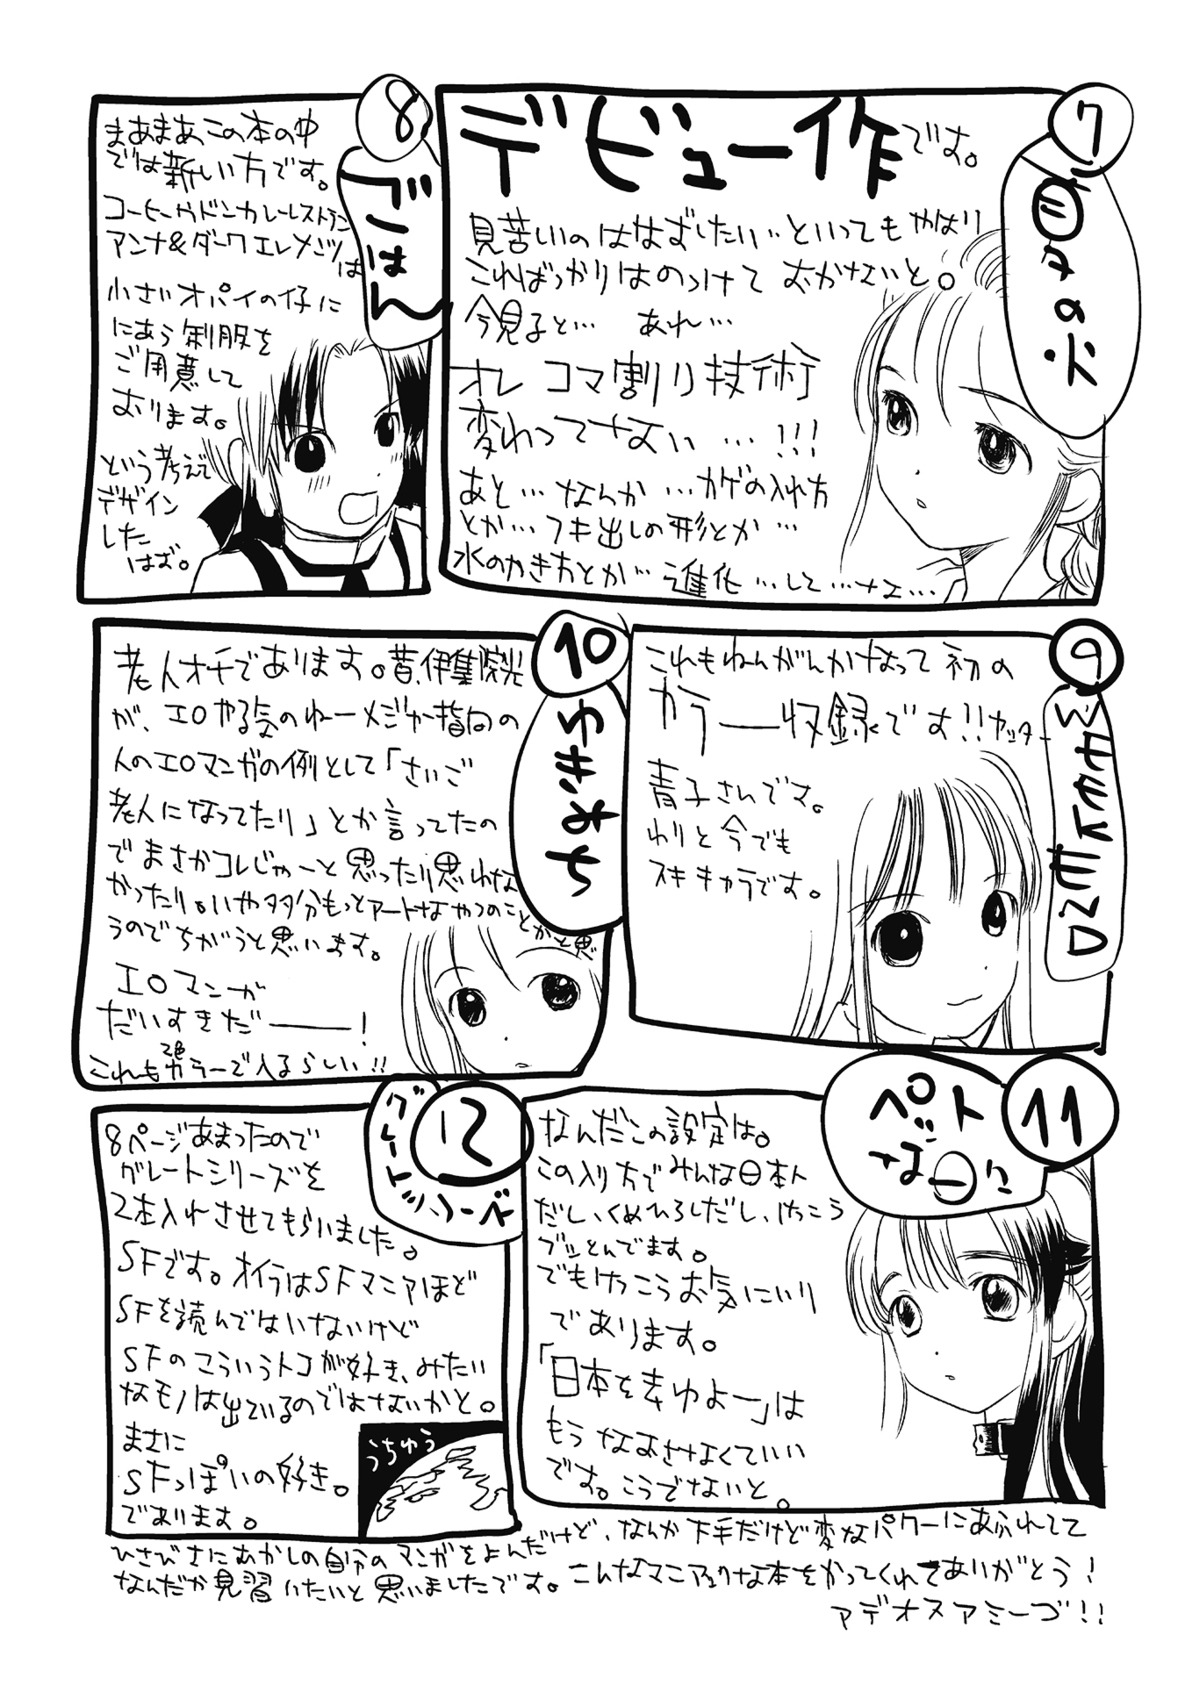 7
の火
デビュー作です。
見苦しいのははずしたい‥といってもやはり
こればっかりはのっけておかないと。
今見ると… あれ…
オレ コマ割り技術
変わってない…!!!
あと…なんか…カゲの入れ方
とか…フキ出しの形とか…
水のかき方とか…進化…して…ねェ…
8
ごはん
まあまあこの本の中
では新しい方です。
コーヒーやドンカレーレストラン
アンナ&ダークエレメンツは
小さいオパイの仔に
にあう制服を
ご用意して
おります。
という考えで
デザイン
した
はず。
9
これもねんがんかなって初の
カラー収録です!!ヤッター
青子さんです。
わりと今でも
スキキャラです。
10
ゆきみち
老人オチであります。昔、伊集院光
が、エロやる気のねーメジャー指向の
人のエロマンガの例として「さいご
老人になってたり」とか言ってたの
でまさかコレじゃーと思ったり思わな
かったり。いや多分もっとアートなやつのことかと思
うのでちがうと思います。
エロマンガ
だいすきだ――!
これも2色カラーで入るらしい!!
11
ペットな
なんだこの設定は。
この入り方でみんな日本人
だし、くめひろしだし、けっこう
ブッとんでます。
でもけっこうお気にいり
であります。
「日本をまゆよー」は
もうなおさなくていい
です。こうでないと。
12
グレート
8ページあまったので
グレートシリーズを
2本入れさせてもらいました。
SFです。オイラはSFマニアほど
SFを読んではいないけど
SFのこういうトコが好き、みたい
なモノは出ているのではないかと。
まさに
SFっぽいの好き。
であります。
うちゅう
ひさびさにむかしの自分のマンガをよんだけど、なんか下手だけど変なパワーにあふれてて
なんだか見習いたいと思いましたです。こんなマニアックな本をかってくれてありがとう!
アデオスアミーゴ!!